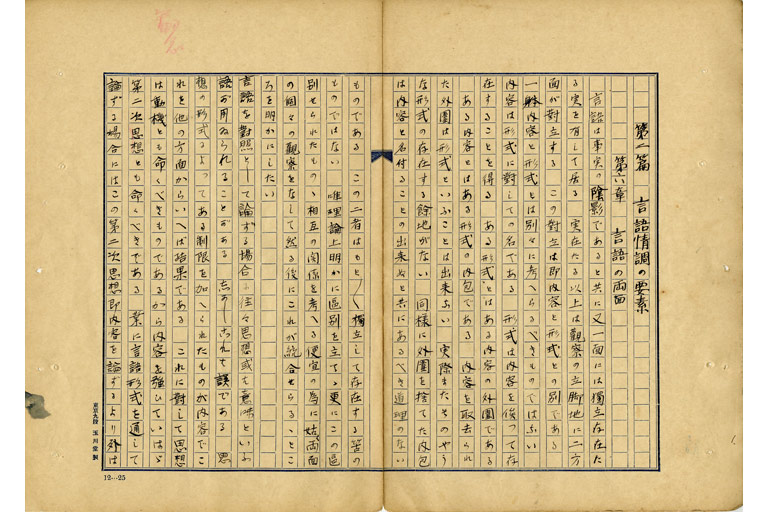 第二篇 言語情調の要素
第六章 言語の両面
言語は事実の陰影であると共に又一面には獨立存在た
る実を有して居る 実在たる以上は觀察の立脚地に二方
面が對立する この對立は即内容と形式との別である
一般内容と形式とは別々に考へらるべきものではない
内容は形式に對しての名である 形式は内容を俟つて存
在することを得る ある形式とはある内容の外圍である
ある内容とはある形式の内包である 内容を取去られ
た外圍は形式といふことは出来ない 実際またそのやう
な形式の存在する餘地がない 同様に外圍を捨てた内包
は内容と名付けることの出来ぬと共にあるべき道理のない
ものである この二者はもと〳〵獨立して存在する筈の
ものではない 唯理論上明かに區別を立てゝ更にこの區
別せられたものゝ相互の関係を考へる便宜の為に姑く両面
の個々の觀察をなして然る後にこれが統合せらるゝとこ
ろを明かにしたい
言語を對照として論ずる場合に往々思想或は意味といふ
語が用ゐられることがある しかしこれは誤である 思
想の形式によつてある制限を加へられたものが内容でこ
れを他の方面からいへば結果である これに對して思想
は動機とも命くべきものであるから内容を強ひていはゞ
第二次思想とも命くべきである 業に言語形式を通して
論ずる場合にはこの第二次思想即内容を論ずるより外は
東京九段 玉川堂製
12…25